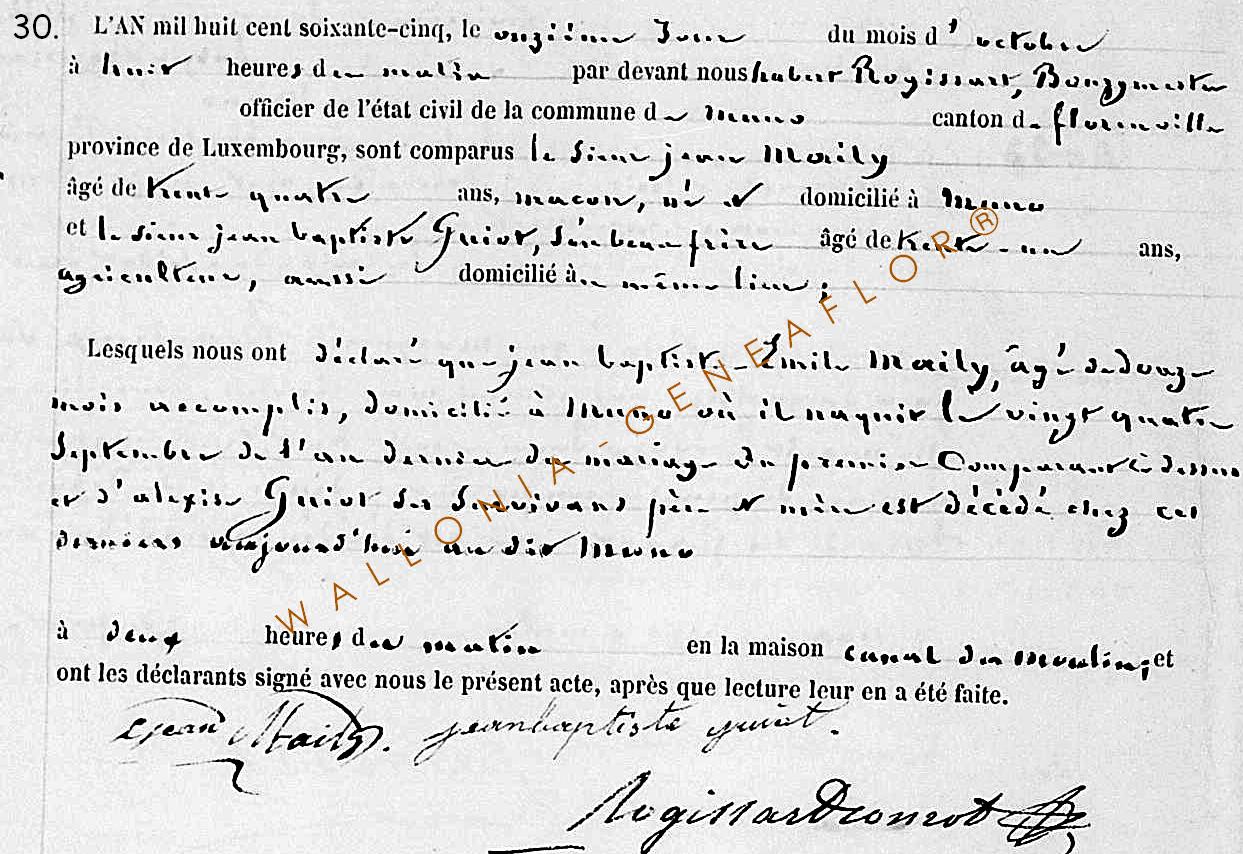 30. L'AN mil huit cent soixante-cinq, le onzième Jour du mois d'octobre
à huit heures du matin par devant nous hubert Rogissart, Bourgmestre
officier de l'état civil de la commune de muno canton de florenville
province de Luxembourg, sont comparus le sieur jean Maily
âgé de trente quatre ans, macon, né et domicilié à Muno
et le sieur jean baptiste Guiot, son beau frère âgé de trente-un ans,
agriculteur, aussi domicilié au même lieu;
Lesquels nous ont déclaré que jean baptiste Emile Maily, âgé de douze
mois accomplis, domicilié à Muno où il naquit le vingt quatre
Septembre de l'an dernier du mariage du premier Comparant ci dessus
et d'alexise Guiot ses survivans père et mère est décédé chez ces
derniers aujourd'hui au dit Muno
à deux heures du matin en la maison canal du moulin; et
ont les déclarants signé avec nous le présent acte, après que lecture leur en a été faite.
jean Maily. jean baptiste guiot.
Rogissart
WALLONIA-GENEAFLOR®